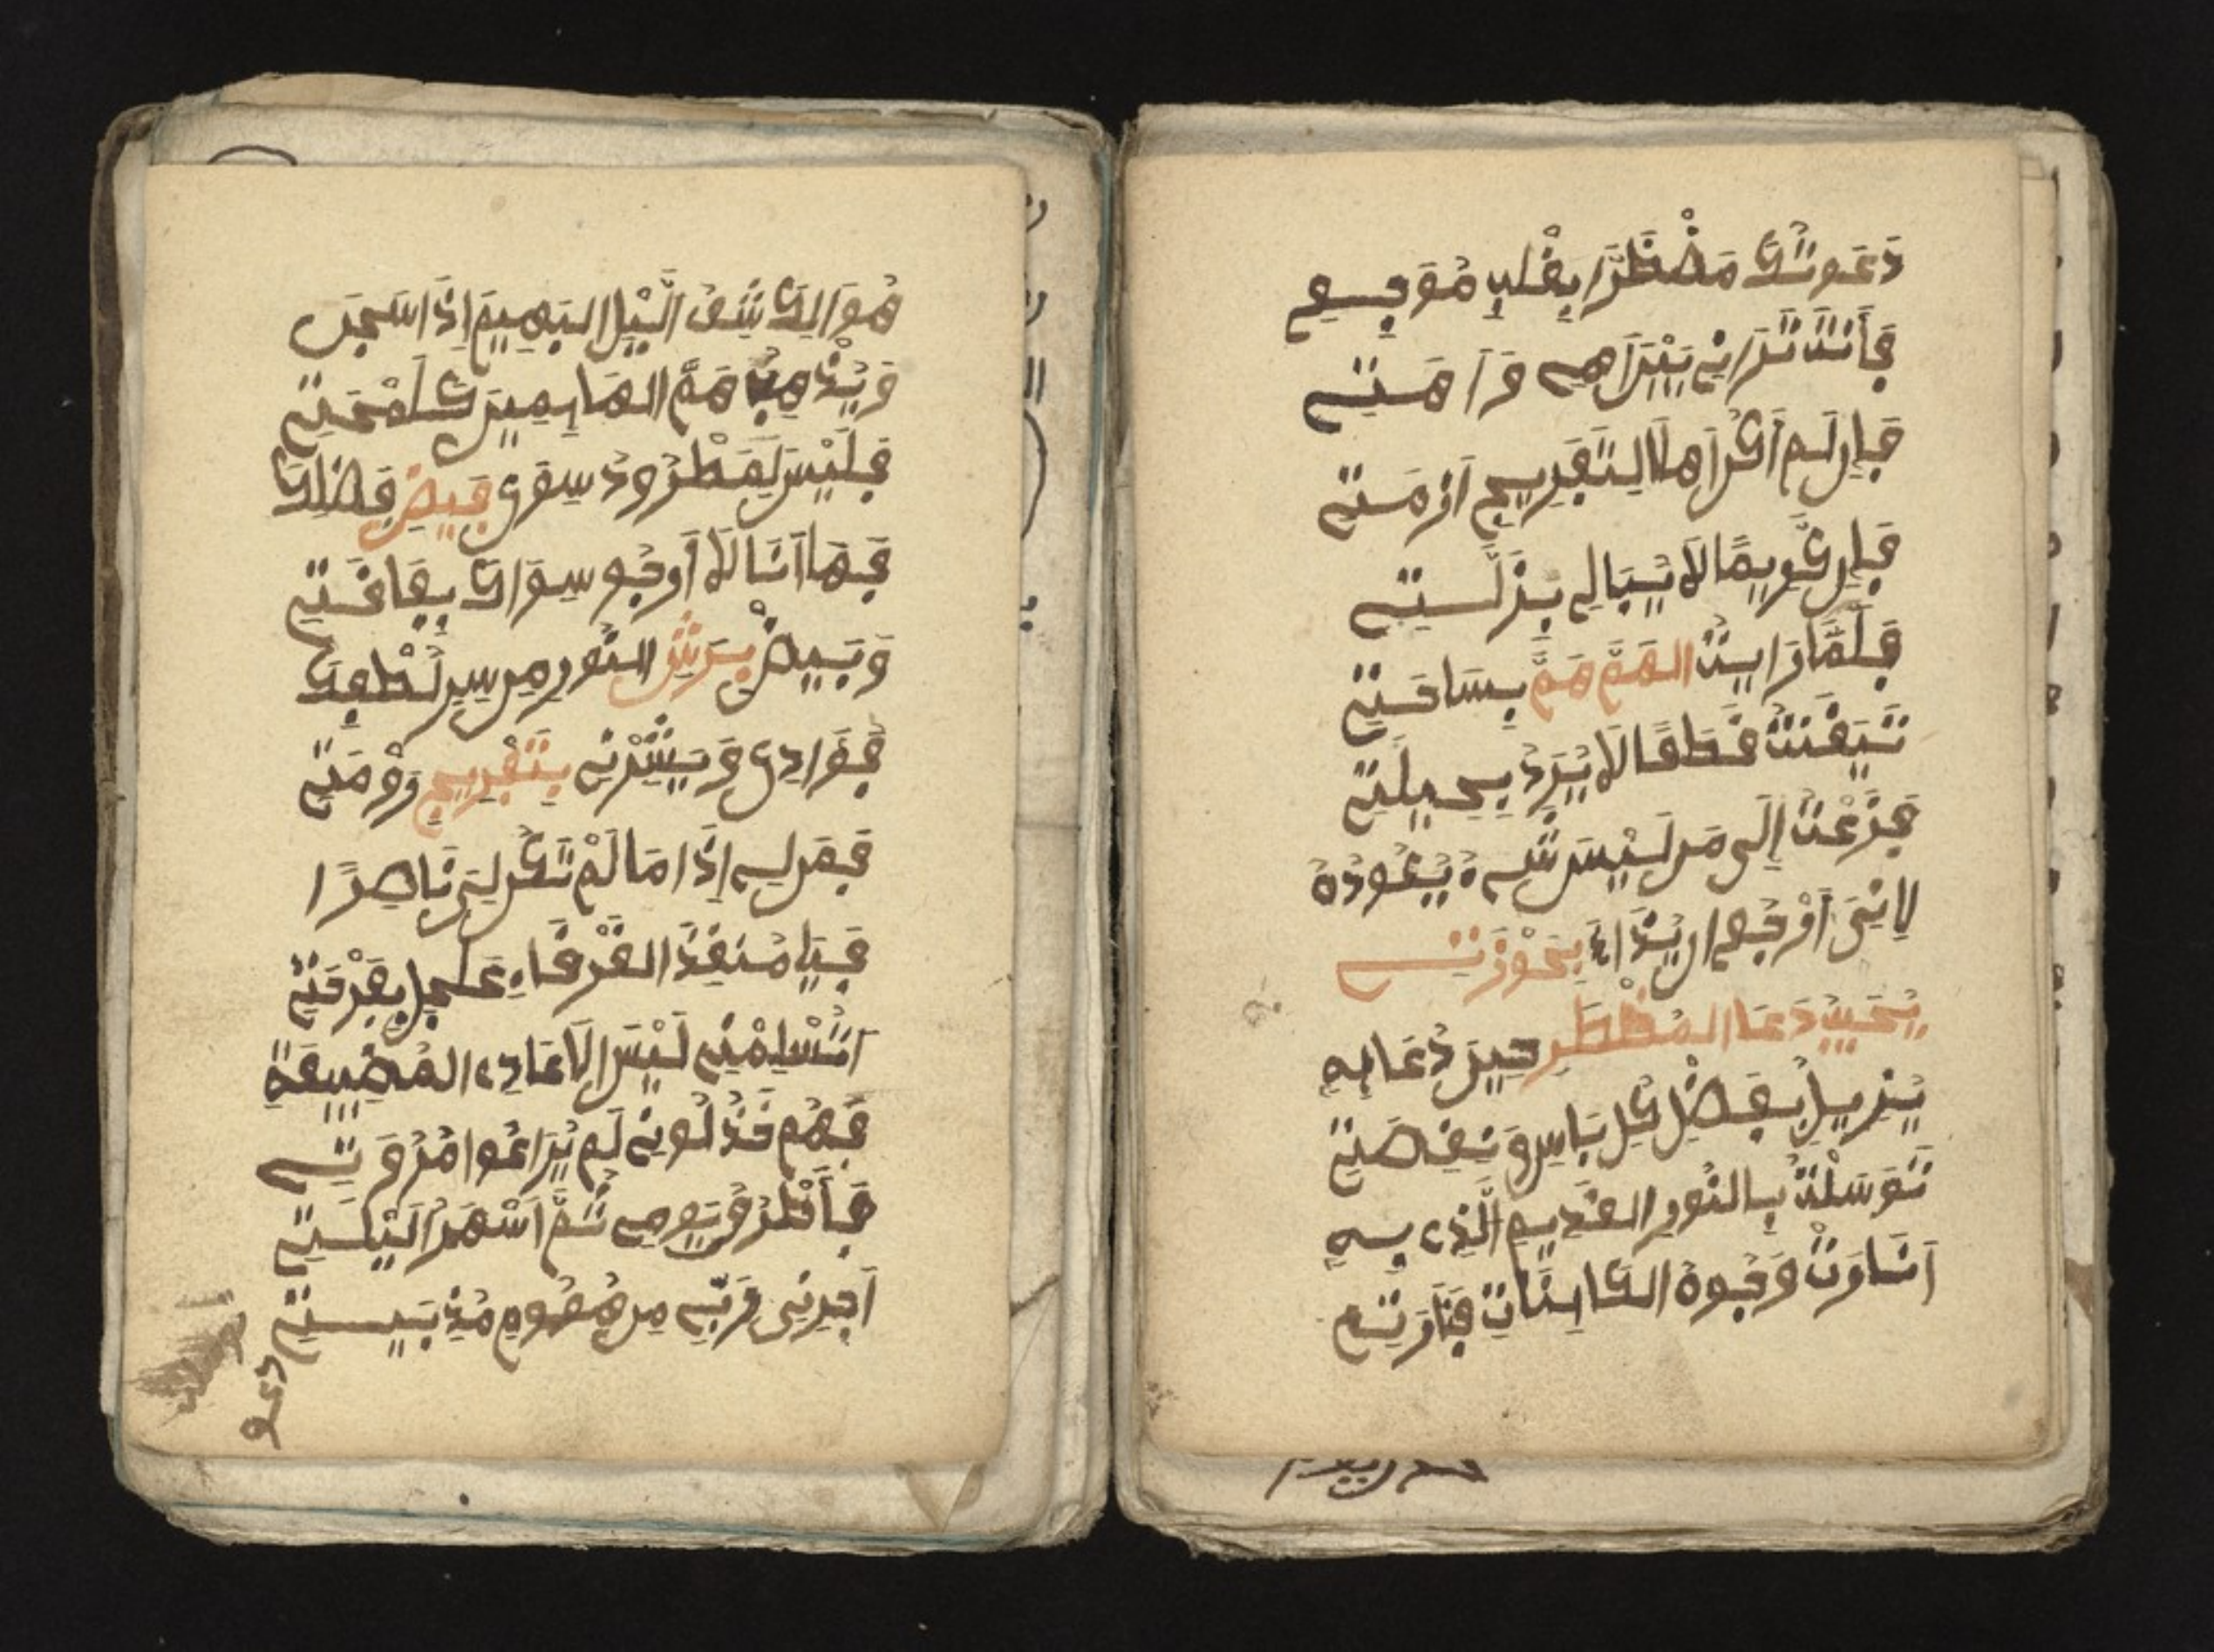 دَعَوتُكَ مَضْطَرًّا بِقْلبٍ مُوَجِعِ
فَأَنتَ تَرَانِي بَيْنَ اهلي وَاهَمتِي
فَإِن لَم أَكُن اهلا لِتَفرِيجِ ازمَتِي
فَإِن كَرِيمًا لَا يُبَالِي بِزَلَّتِي
فَلَمَّا رَايتُ الهَمَّ هَمَّ بِسَاحَتِي
تَيَقَّنتُ قَطعًا لَا يُرَدُّ بِحِيلَتِي
فَزعتُ إِلَى مَن لَيسَ شَيء يُعُودُهُ
لِانِّى بِحَوْزَتِي
يُجَيبُ دَعَا المُضطَر حِينَ دُعَا بِهِ
يُزِيلُ بِفَضلِ كُل بَاسٍ وَنِقصَتِي
تَوَسَلْتُ بِالنُورِ القَدِيمِ الَّذِي بِهِ
انَارَت وُجُوهُ الكَاينَاتِ فَنَارَتِي
هُوَ الكَاشِفُ الَّيْلِ البَهِيمِ إِذَا سَجَى
وَيُذْهِبُ هَمَّ الهَايِمِينَ كَلَمْحَتِي
فَلَيْسَ لِمَطْرُودٍ سِوَى فَيضِ فَضلِكَ
فَهَا أَنَا لَا أَرجُو سِوَاكَ بِفَاقَتِي
وَبَيِضْ بِرَشِّ النُّورِ مِن سِرِ لُطْفِكَ
فُؤَادِي وَبَشِّرْنِي بِتَفْرِيجِ وزْمَتِي
فَمَن لِي إِذَا مَا لَمْ تَكُن لِي نَاصِرًا
فَيَا مُنقِذَ الغَرْقَاءِ عَجِل بِفِرْقَتِي
اتُسْلِمْنِي لَيْسَ الاعَادِي المُضِيعَةِ
فَهُم قَذلُونِي لَم يُرَاعُوا امُرُوَتِي
فَأَطْرُقُ يَومِي ثُمَّ اسْهَرُ لَيْلَتِي
أَجِرنِى وَرَبِّي مِن هُمُومٍ مُذِيبَتِي
دعو